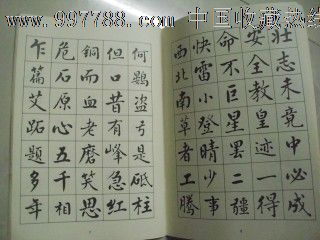 www.997788.com 中国收藏热线
壮志未竟中必成
安全教皇迹一得
命不巨星罢二疆
快雷小登晴少事
西北南草者工腾
何盗亏是砥柱
但口昔有峰急红
铜而血老磨笑思
危石原心五千相
乍篇艾跖题多年